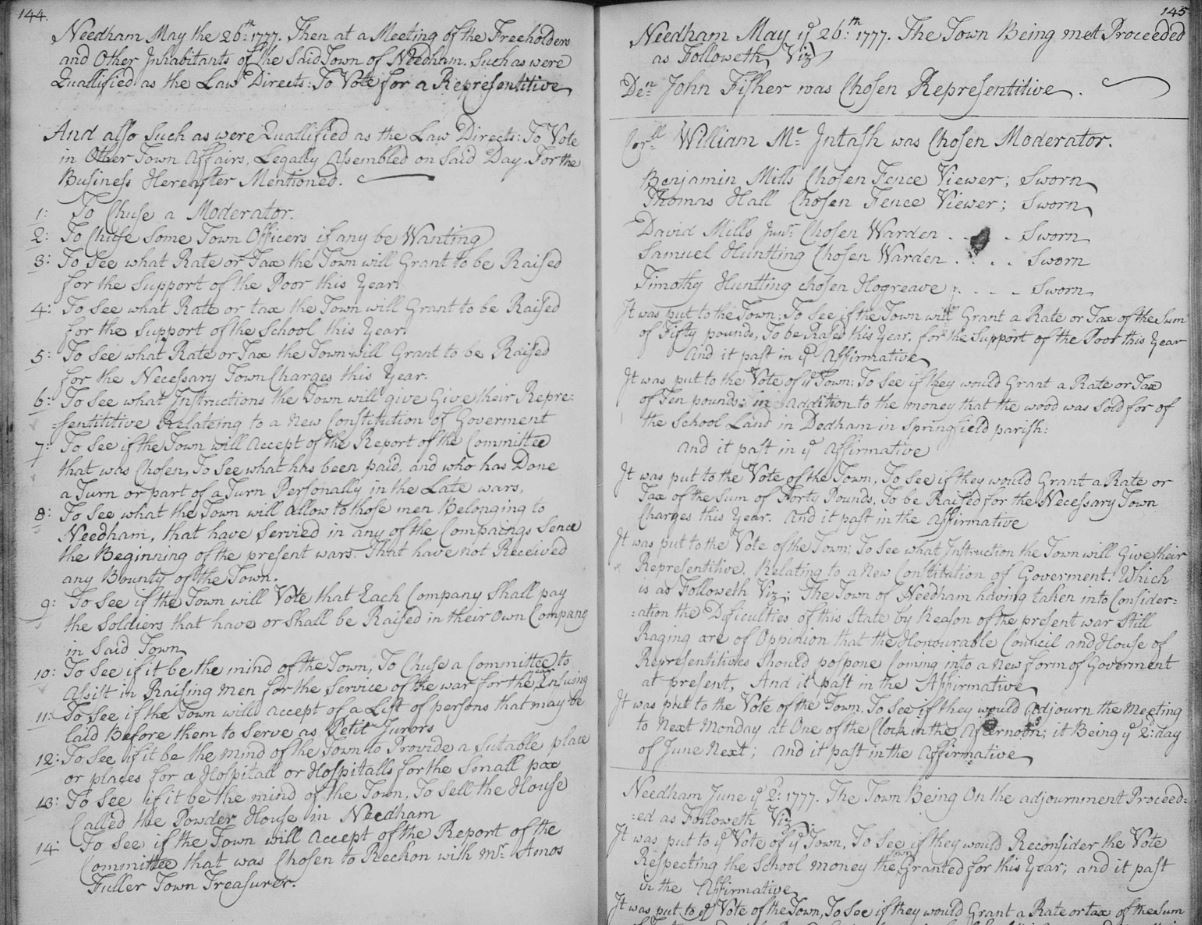 144.
Needham May the 26th: 1777. Then at a Meeting of the Freeholders
and Other Inhabitants of the Said Town of Needham. Such as were
Quallified as the Law Directs: To Vote for a Representitive
And also Such as were Quallified as the Law Directs: To Vote
in Other Town Affairs, Legally Assembled on Said Day. For the
Business Hereafter Mentioned.
1: To Chuse a Moderator.
2: To Chuse Some Town Officers if any be Wanting
3: To See what Rate or Tax the Town will Grant to be Raised
for the Support of the Poor this Year
4: To See what Rate or tax the Town will Grant to be Raised
for the Support of the School this Year
5: To See what Rate or Tax the Town will Grant to be Raised
for the Necessary Town Charges this Year.
6: To See what Instructions the Town will give Give their Repre:
sentitive Relateing to a New Constitution of Goverment
7: To See if the Town will Accept of the Report of the Committee
that was Chosen, To See what has been paid, and who has Done
a Turn or part of a Turn Personally in the Late wars,
8: To See what the Town will Allow to those men Belonging to
Needham, that have Servied in any of the Compaings Sence
the Beginning of the present wars That have not Received
any Bounty of the Town.
9: To See if the Town will Vote that Each Company Shall pay
the Soldiers that have or Shall be Raised in their Own Company
in Said Town
10: To See if it be the mind of the Town, To Chuse a Committee to
Assist in Raising men for the Service of the war for the Insuing
11: To See if the Town will Accept of a List of persons that may be
laid Before them to Serve as Petit Jurors
12: To See if it be the mind of the Town to Provide a Sutable place
or places for a Hospitall or Hospitalls for the Small pox
13: To See if it be the mind of the Town, To Sell the House
Called the Powder House in Needham
14: To See if the Town will Accept of the Report of the
Committee that was Chosen to Reckon with Mr. Amos
Fuller Town Treasurer.
145
Needham May ye 26th: 1777. The Town Being met Proceeded
as Followeth Viz
Den John Fisher was Chosen Representitive.
William Mc Intash was Chosen Moderator.
Benjamin Mills Chosen Fence Viewer; Sworn
Thomas Hall Chosen Fence Viewer; Sworn
David Mills Junr. Chosen Warden . . . Sworn
Samuel Huntting Chosen Warden . . . . Sworn
Timothy Huntting chosen Hogreave . - - - Sworn
It was put to the Town; To See if the Town will Grant a Rate or Tax of the Sum
of Fifty pounds, To be Rased this Year, for the Support of the Poor this Year
And it past in ye Affirmative
It was put to the Vote of ye Town; To See if they would Grant a Rate or Tax
of Ten pounds in Addition to the money that the wood was Sold for of
the School Land in Dedham in Springfield parish:
and it past in ye Affirmative
It was put to the Vote of the Town, To See if they would Grant a Rate or
Tax of the Sum of Forty Pounds, To be Raised for the Necessary Town
Charges this Year. And it past in the Affirmative
It was put to the Vote of the Town; To See what Instruction the Town will Give their
Representitive, Relating to a New Constitution of Goverment: Which
is as Followeth Viz; The Town of Needham having taken into Consider:
:ation the Dificulties of this State by Reason of the present war Still
Raging are of Oppinion that the Honourable Council and House of
Representitives Should pospone Coming into a New form of Goverment
at present, And it past in the Affirmative
It was put to the Vote of the Town, To See if they would adjourn the Meeting
to Next Monday at One of the Clock in the Afternoon; it Being ye 2d: day
of June Next; and it past in the Affirmative
Needham June ye 2: 1777. The Town Being On the adjournment Proceed:
:ed as Followeth Viz
It was put to ye Vote of ye Town, To See if they would Reconsider the Vote
Respecting the School money the town Granted for this Year; and it past
in the Affirmative
It was put to ye Vote of the Town, To See if they would Grant a Rate or tax of the Sum